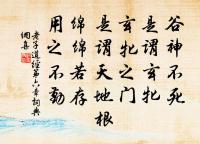 谷神不死
是謂玄牝
玄牝之门
是謂天地根
绵绵若存
用之不勤
老子道經第六章詞典